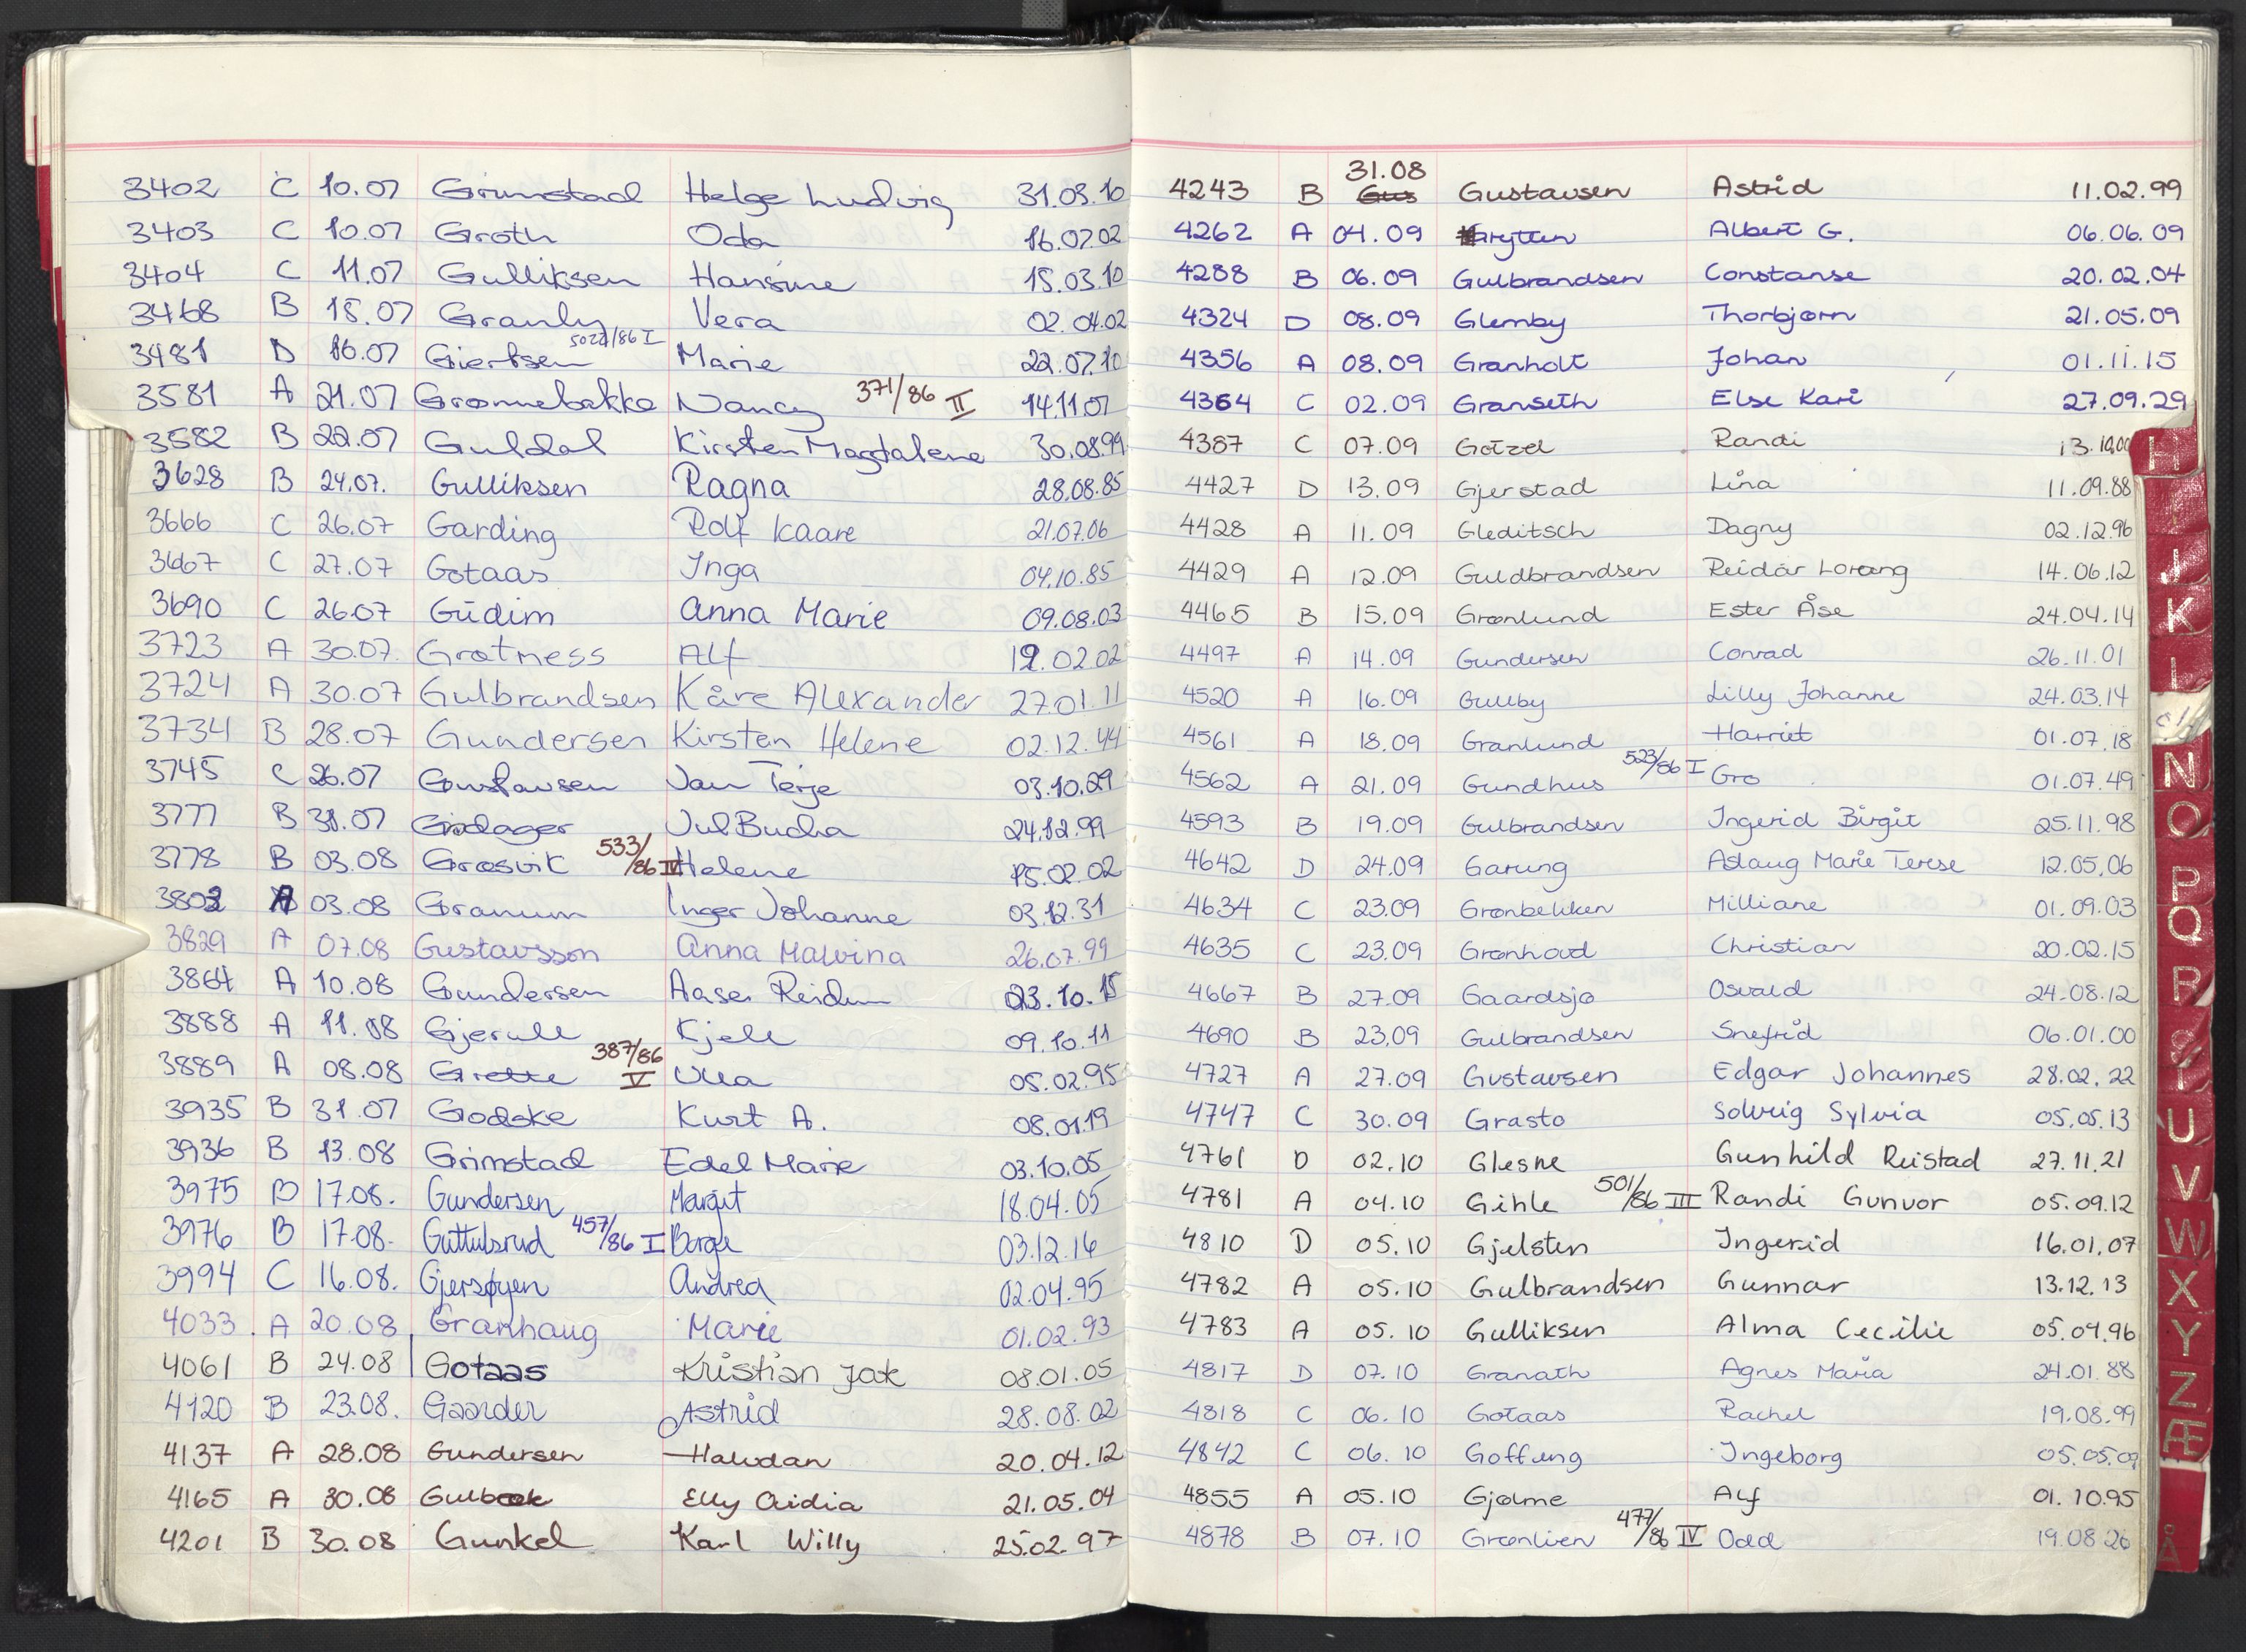 3402 C 10.07 Grimstad Helge Ludvig 31.03.10
3403 C 10.07 Groth Oda 16.07.02
3404 C 11.07 Gulliksen Hansine 15.03.10
3468 B 15.07 Granly Vera 02.04.02
3481 D 16.07 Giertsen 5022/86 I Marie 22.07.10
3581 A 21.07 Grønnebakke Nancy 371/86 II 14.11.07
3582 B 22.07 Guldal Kirsten Magdalene 30.08.99
3628 B 24.07. Gulliksen Ragna 28.08.85
3666 C 26.07 Garding Rolf Kaare 21.07.06
3667 C 27.07 Gotaas Inga 04.10.85
3690 C 26.07 Gudim Anna Marie 09.08.03
3723 A 30.07. Grøtness Alf 12.02.02
3724 A 30.07 Gulbrandsen Kåre Alexander 27.01.11
3734 B 28.07 Gundersen Kirsten Helene 02.12.44
3745 C 26.07 Gustavsen Jan Terje 03.10.29
3777 B 31.07 Gidager Jul Bucha 24.12.99
3778 B 03.08 Græsvik 533/86 IV Helene 15.02.02
3802 A 03.08 Granum Inger Johanne 03.12.31
3829 A 07.08 Gustavsson Anna Malvina 26.07.99
3864 A 10.08 Gundersen Aase Reidun 23.10.15
3888 A 11.08 Gjerull Kjell 09.10.11
3889 A 08.08 Grette 387/86 V Ulla 05.02.95
3935 B 31.07 Godske Kurt A. 08.01.19
3936 B 13.08 Grimstad Edel Marie 03.10.05
3975 B 17.08. Gundersen Margit 18.04.05
3976 B 17.08. Guttulsrud 457/86 I Borge 03.12.16
3994 C 16.08. Gjersøyen Andrea 02.04.95
4033. A 20.08 Granhaug Marie 01.02.93
4061 B 24.08 Gotaas Kristian Jak 08.01.05
4120 B 23.08. Gaarder Astrid 28.08.02
4137 A 28.08 Gundersen Halvdan 20.04.12
4165 A 30.08 Gulbek Elly Ovidia 21.05.04
4201 B 30.08 Gunkel Karl Willy 25.02.97
31.08
4243 B Gus Gustavsen Astrid 11.02.99
4262 A 04.09 Grytten Albert G. 06.06.09
4288 B 06.09 Gulbrandsen Constanse 20.02.04
4324 D 08.09 Glemby Thorbjørn 21.05.09
4356 A 08.09 Granholt Johan 01.11.15
4364 C 02.09 Granseth Else Kari 27.09.29
4387 C 07.09 Gotzel Randi 13.10.00
4427 D 13.09 Gjerstad Lina 11.09.88
4428 A 11.09 Gleditsch Dagny 02.12.96
4429 A 12.09 Guldbrandsen Reidar Lorang 14.06.12
4465 B 15.09 Grønlund Ester Åse 24.04.14
4497 A 14.09 Gundersen Conrad 26.11.01
4520 A 16.09 Gullby Lilly Johanne 24.03.14
4561 A 18.09 Granlund Harriet 01.07.18
4562 A 21.09 Gundhus 523/86 I Gro 01.07.49
4593 B 19.09 Gulbrandsen Ingerid Birgit 25.11.98
4642 D 24.09 Garung Aslaug Marie Terese 12.05.06
4634 C 23.09 Grønbekken Milliane 01.09.03
4635 C 23.09 Grønhovd Christian 20.02.15
4667 B 27.09 Gaardsjø Osvald 24.08.12
4690 B 23.09 Gulbrandsen Snefrid 06.01.00
4727 A 27.09 Gustavsen Edgar Johannes 28.02.22
4747 C 30.09 Grasto Solveig Sylvia 05.05.13
4761 D 02.10 Glesne Gunhild Reistad 27.11.21
4781 A 04.10 Gihle 501/86 III Randi Gunvor 05.09.12
4810 D 05.10 Gjelsten Ingerid 16.01.07
4782 A 05.10 Gulbrandsen Gunnar 13.12.13
4783 A 05.10 Gulliksen Alma Cecilie 05.09.96
4817 D 07.10 Granath Agnes Maria 24.01.88
4818 C 06.10 Gotaas Rachel 19.08.99
4842 C 06.10 Goffeng Ingeborg 05.05.09
4855 A 05.10 Gjølme Alf 01.10.95
4878 B 07.10 Grønlien 477/86 IV Odd 19.08.20
H
J
K
L
N
O
P
Q
R
U
V
W
X
Y
Z
Æ
Å